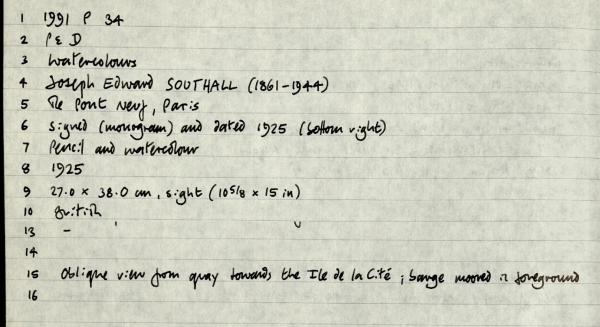 1 1991 P 34
2 P & D
3 Watercolours
4 Joseph Edward SOUTHALL (1861-1944)
5 Le Pont Neuf, Paris
6 Signed (monogram) and dated 1925 (bottom right)
7 Pencil and watercolour
8 1925
9 27.0 x 38.0 cm, sight (10 5/8 x 15 in)
10 British
13 -
14
15 Oblique view from quay towards the Ile de la Cité ; barge moored in foreground
16